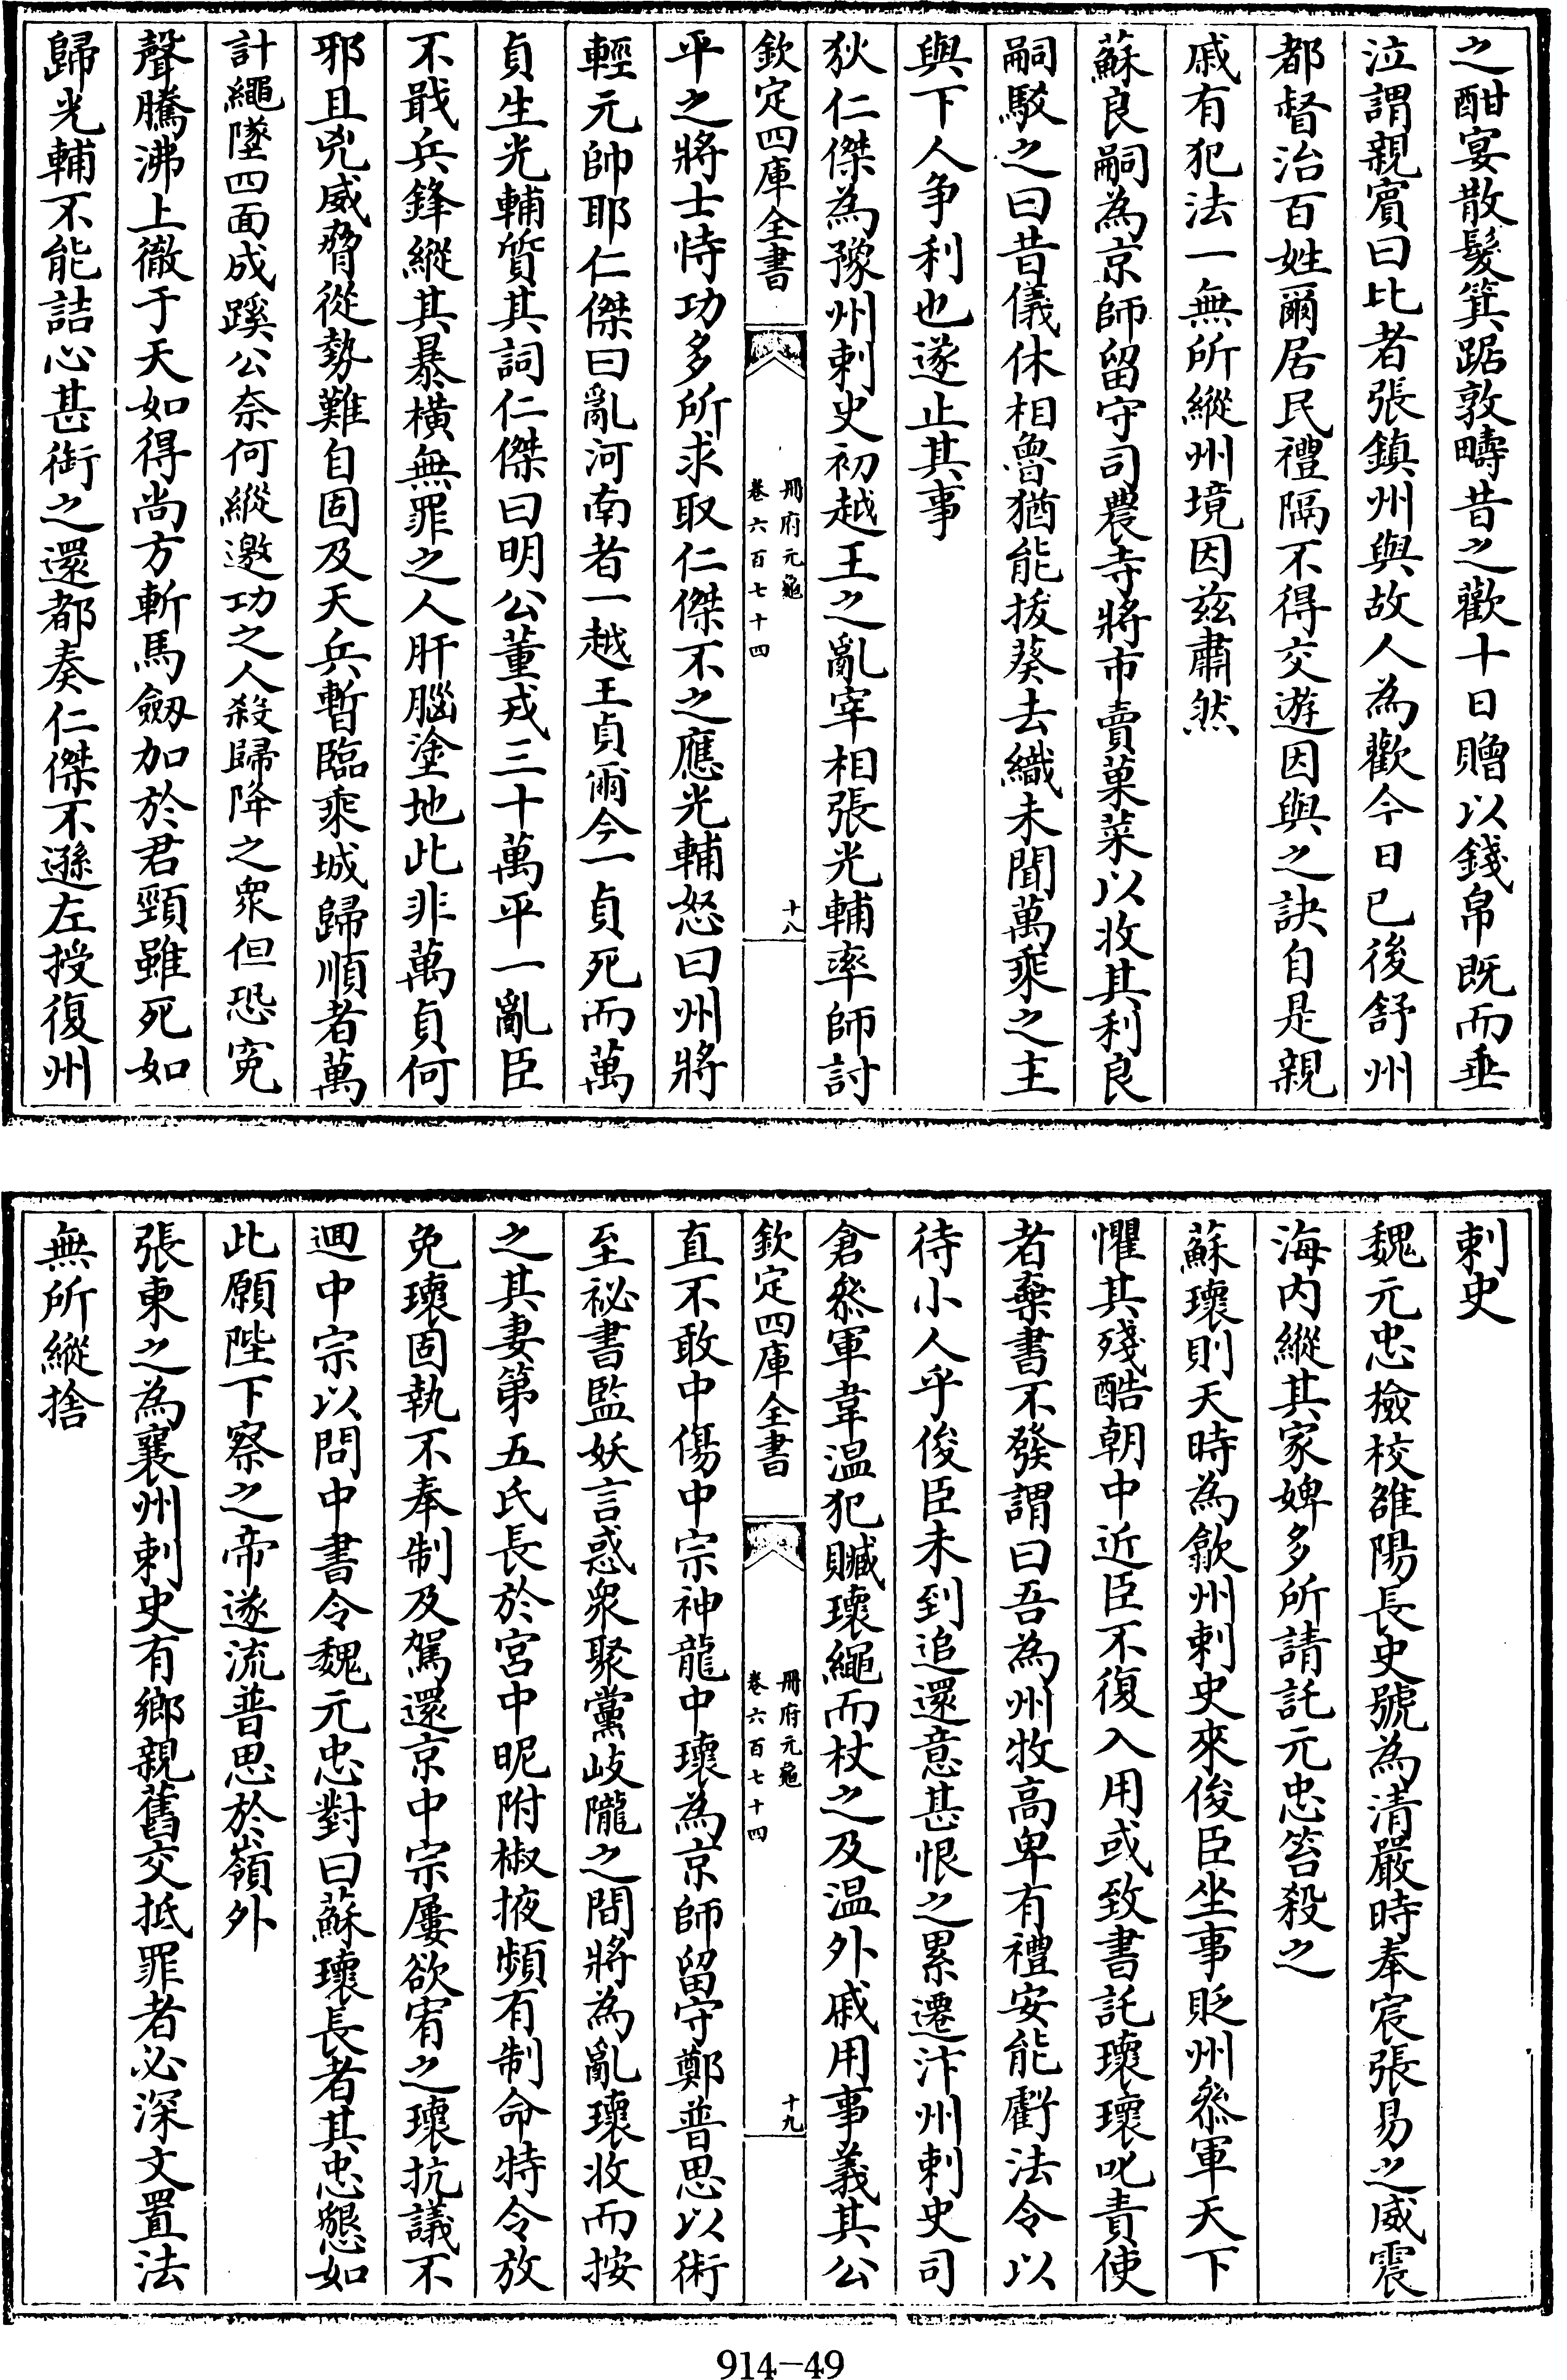 之酣宴散髮箕踞敦疇昔之歡十日贈以錢帛既而垂
泣謂親賔曰比者張鎮州與故人為歡今日已後舒州
都督治百姓爾居民禮隔不得交遊因與之訣自是親
戚有犯法一無所縱州境因兹肅然
蘇良嗣為京師留守司農寺將市賣菓菜以收其利良
嗣駮之曰昔儀休相魯猶能拔葵去織未聞萬乘之主
與下人争利也遂止其事
狄仁傑為豫州刺史初越王之亂宰相張光輔率師討
欽定四庫全書
冊府元龜
卷六百七十四
十八
平之將士恃功多所求取仁傑不之應光輔怒曰州將
輕元帥耶仁傑曰亂河南者一越王貞爾今一貞死而萬
貞生光輔質其詞仁傑曰明公董戎三十萬平一亂臣
不戢兵鋒縱其暴橫無罪之人肝腦塗地此非萬貞何
邪且兇威脅從勢難自固及天兵暫臨乘城歸順者萬
計繩墜四面成蹊公奈何縱邀功之人殺歸降之衆但恐寃
聲騰沸上徹于天如得尚方斬馬劒加於君頸雖死如
歸光輔不能詰心甚銜之還都奏仁傑不遜左授復州
刺史
魏元忠檢校雒陽長史號為清嚴時奉宸張易之威震
海内縱其家婢多所請託元忠笞殺之
蘇瓌則天時為歙州刺史來俊臣坐事貶州叅軍天下
懼其殘酷朝中近臣不復入用或致書託瓌瓌叱責使
者棄書不發謂曰吾為州牧高卑有禮安能虧法令以
待小人乎俊臣未到追還意甚恨之累遷汴州刺史司
倉叅軍韋温犯贓瓌繩而杖之及温外戚用事義其公
欽定四庫全書
冊府元龜
卷六百七十四
十九
直不敢中傷中宗神龍中瓌為京師留守鄭普思以術
至祕書監妖言惑衆聚黨岐隴之間將為亂瓌收而按
之其妻第五氏長於宮中昵附椒掖頻有制命特令放
免瓌固執不奉制及駕還京中宗屢欲宥之瓌抗議不
迴中宗以問中書令魏元忠對曰蘇瓌長者其忠懇如
此願陛下察之帝遂流普思於嶺外
張東之為襄州刺史有鄉親舊交抵罪者必深文置法
無所縱捨
914-49